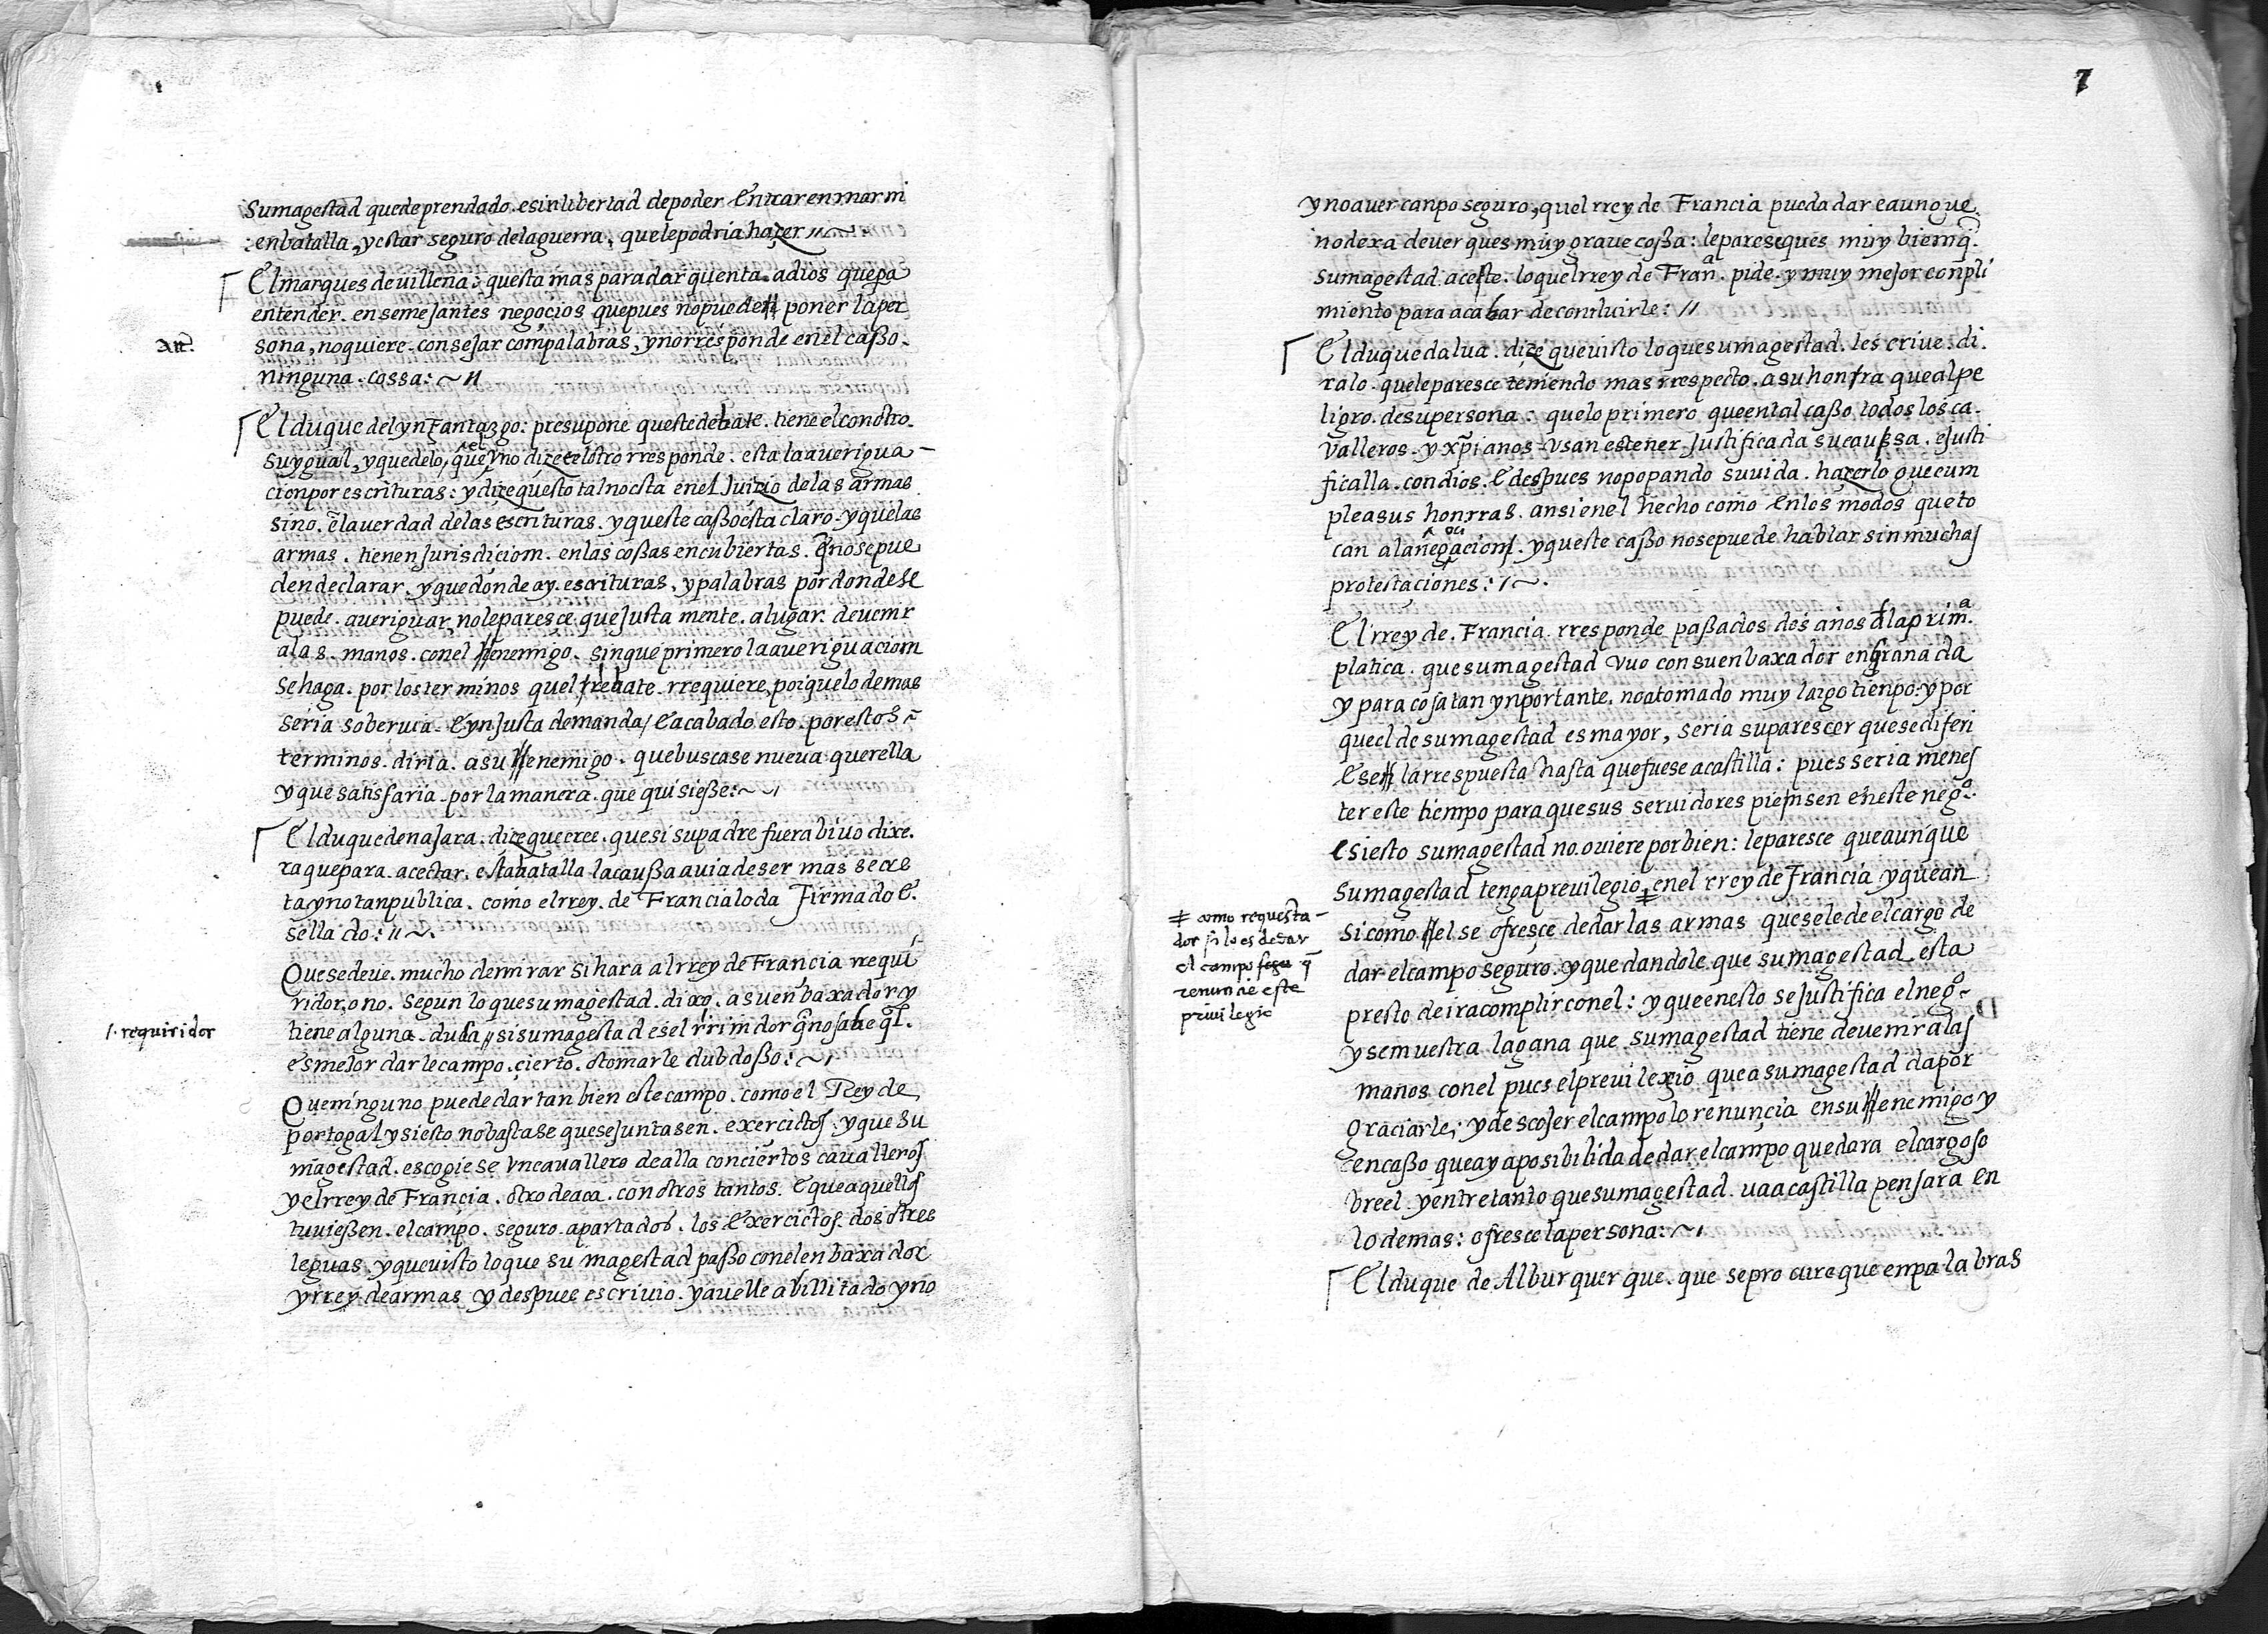 Sumagestad quedeprendado. esinlibertad depoder Entrarenmarni
enbatalla, yestar seguro delaguerra, quelepodria hazer //~
El marques devillena: questa mas paradar quenta. adios quepa
entender. ensemejantes negoçios quepues nopueden poner laper
Att.
sona, noquiere. consejar compalabras, ynorresponde enel caßo.
ninguna. cossa: ~//
El duque del ynfantazgo: presupone questedebate. tiene elconotro.
suygual, yquedelo, quel vno dize elotro rresponde. esta laaverigua-
cionpor escrituras: ydizequesto talnoesta enel Juizio delas armas
sino. ẽlaverdad delas escrituras. yqueste caßoesta claro. yquelas
armas. tienen Jurisdiçiom. enlas coßas encubiertas. q̃nosepue
dendeclarar. yquedonde ay. escrituras, ypalabras pordondese
puede. averiguar, noleparesce. que Justa mente. alugar. devenir
alas. manos. conel enemigo. sinque primero laaveriguaciom
sehaga. por los terminos quel trebate. rrequiere, porquelo demas
seria soberuia. Eynjusta demanda / Eacabado esto. porestos
terminos. diria. asu enemigo. quebuscase nueva querella
yque satisfaria. por lamanera. que quisieße: ~~
El duque denajara. dize quecree. quesi supadre fuera bivo dixe.
raquepara. acectar. estabatalla lacaußa aviadeser mas secre
ta ynotanpublica. como elrrey. de Francialoda Firmado E.
sella do: //~.
Quesedeue. mucho demirar sihara alrrey de Francia rrequi
ridor, o no. segun lo quesumagestad. dixo. asuenbaxador y
1. requiridor
tiene alguna. duda // sisumagestad esel rrimdor q̃nosabe q̃l.
esmejor darlecampo. çierto. otomarle dubdoßo: ~,
Queninguno puede dar tan bien este campo. como el Rey de
portogal ysiesto nobastase quesejuntasen. exercictos. yque su
magestad. escogiese vncauallero dealla conciertos caualleros
yelrrey de Francia. otro deaca. con otros tantos. Equeaquellos
tuvießen. elcampo. seguro. apartados. los Exercictos. dos otres
leguas. yquevisto loque su magestad paßo conelenbaxador
yrrey dearmas y despues escrivio. yavelle abillitado yno
7
ynoaver canposeguro, quel rrey de Francia pueda dar eaunque
nodexa dever ques muy grave coßa: lepareseques muy biemq̃.
sumagestad. aceste. loquelrrey de Franᵃ. pide. y muy mejor conpli
miento para acabar deconcluirle: //
El duque dalua. dize quevisto loquesumagestad. les crive. di.
ralo. queleparesce teniendo mas rrespecto. asuhonrra quealpe
ligro. desupersona: quelo primero queental caßo todos los ca.
valleros. y xp̃ianos vsan estener. Justificada sucaussa. eJusti
ficalla. con dios. E despues nopopando suvida. hazerlo quecum
pleasus honrras. ansienel hecho como Enlos modos que to
can alanegociacion. yqueste caßo nosepuede hablar sinmuchas
protestaciones: /~.
El rrey de. Francia. rresponde paßados dos años dlaprimᵃ.
platica. quesumagestad Vuo consuenbaxador engranada
y para cosatan ynportante, noatomado muy largo tienpo: ypor
queel desumagestad es mayor, seria suparescer quesediferi
Ese larrespuesta hasta quefuese acastilla: pues seria menes
ter este tiempo para quesus servidores piensen eneste negº.
Esiesto sumagestad no. oviere porbien: leparesce queaunque
Sumagestad tengaprevilegio, enel rrey de Francia yquean
si como el se ofresce dedar las armas quesele de elcargo de
dar elcampo seguro. yque dandole que sumagestad. esta
# como requesta-
dor si lo es de dar
el campo q̃
renuncie este
privilegio
presto deiracomplir conel: yqueenesto sejustifica elnegº.
y semuestra lagana que sumagestad tiene devenir alas
manos conel pues elprevilexio que a sumagestad dapor
graciarle, ydescojer elcampolo renunçia ensu enemigo y
encaßo queay aposibilida dedar elcampo quedara elcargoso
breel. yentretanto quesumagestad. vaacastilla pensara en
lodemas: ofrescelapersona: ~,
El duque de Alburquerque. que se procure que enpalabras